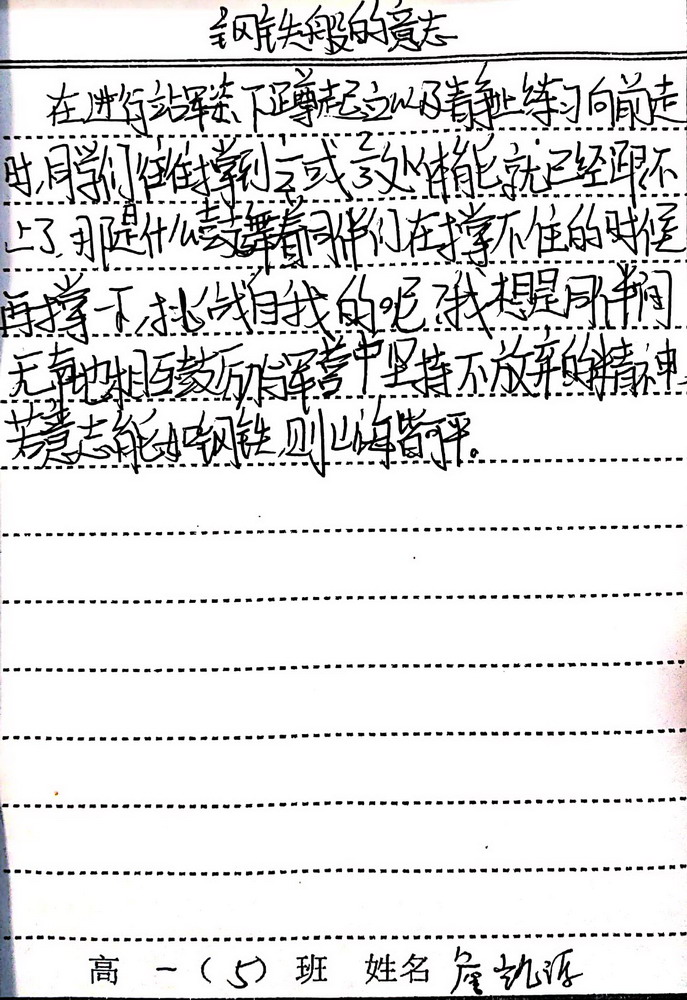 钢铁般的意志
在进行站军姿、下蹲起立以及静止练习向前走
时,同学们往往撑到½或⅔处体能就已经跟不
上了,那是什么鼓舞着同伴们在撑不住的时候
再撑一下,挑战自我的呢?我想是同伴间
无声地相互鼓励与军营中坚持不放弃的精神。
若意志能如钢铁,则山海皆可平。
高一(5)班 姓名